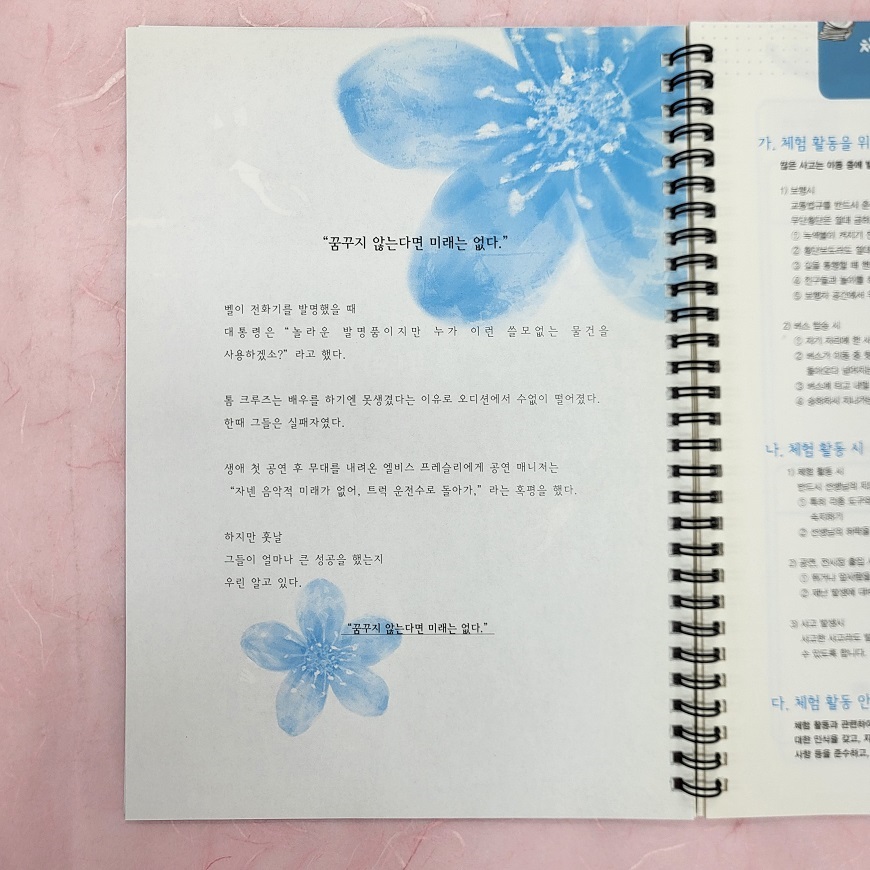 “꿈꾸지 않는다면 미래는 없다.”
벨이 전화기를 발명했을 때
대통령은 “놀라운 발명품이지만 누가 이런 쓸모없는 물건을
사용하겠소?” 라고 했다.
톰 크루즈는 배우를 하기엔 못생겼다는 이유로 오디션에서 수없이 떨어졌다.
한때 그들은 실패자였다.
생애 첫 공연 후 무대를 내려온 엘비스 프레슬리에게 공연 매니저는
“자넨 음악적 미래가 없어, 트럭 운전수로 돌아가,” 라는 혹평을 했다.
하지만 훗날
그들이 얼마나 큰 성공을 했는지
우린 알고 있다.
“꿈꾸지 않는다면 미래는 없다.”
가. 체험 활동을 위
많은 사고는 이동 중에
1) 보행시
교통법규를 반드시
무단횡단은 절대 금하
① 녹색불이 켜지기
② 횡단보도라도 절대
③ 길을 통행할 때
④ 친구들과 놀이를
⑤ 보행자 공간에서
2) 버스 탑승 시
① 자기 자리에 한
② 버스가 이동 중
③ 버스에 타고 내릴
④ 승하차시 지나가는
나. 체험 활동 시
1) 체험 활동 시
반드시 선생님의
① 특히 각종 도구
숙지하기
② 선생님의 허락을
2) 공연, 전시장 출입
① 뛰거나 앞사람을
② 재난 발생에 대비
3) 사고 발생시
사소한 사고라도
수 있도록 합니다.
다. 체험 활동 안
체험 활동과 관련하여
대한 인식을 갖고,
사항 등을 준수하고,